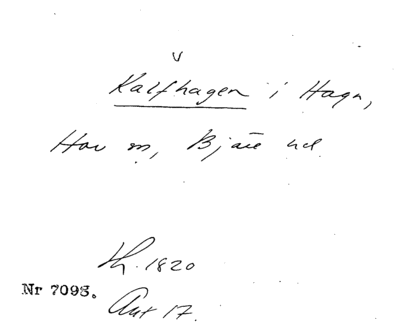 v
Kalfhagen i Hagn,
Hov sn, Bjäre hd
Th. 1820
Nr 7093.
Ant 17.